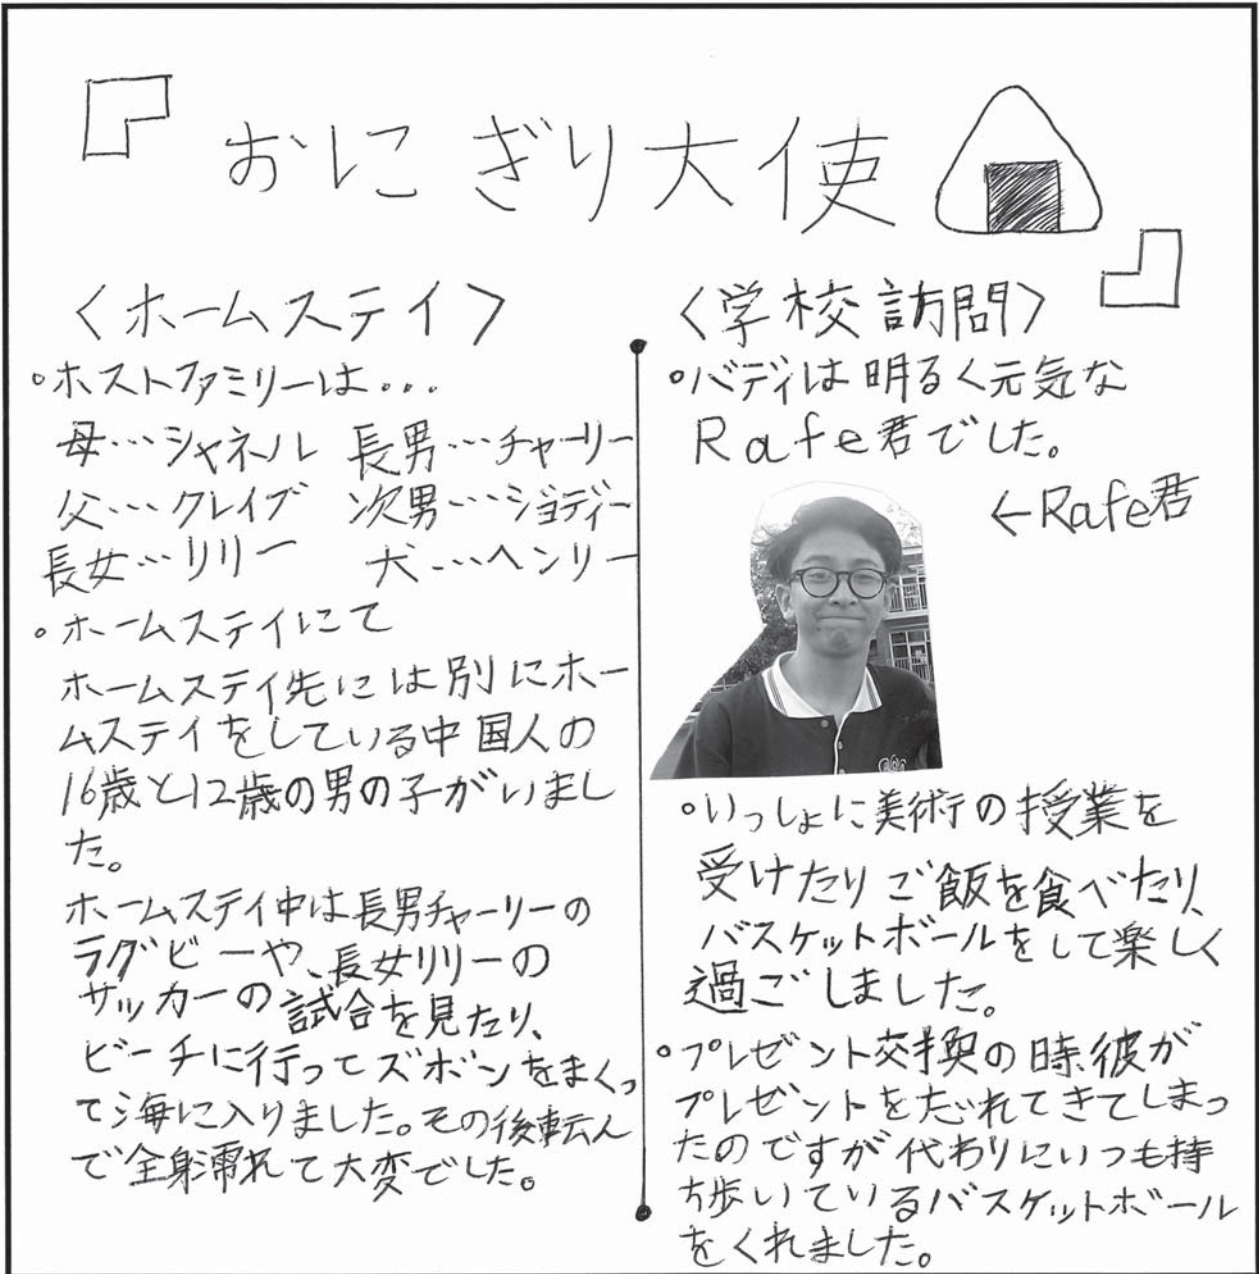 『おにぎり大使』
〈ホームステイ〉
。ホストファミリーは...
母…シャネル 長男…チャーリー
父…クレイブ 次男…ジョディー
長女…リリー 犬…ヘンリー
。ホームステイにて
ホームステイ先には別にホー
ムステイをしている中国人の
16歳と12歳の男の子がいまし
た。
ホームステイ中は長男チャーリーの
ラグビーや、長女リリーの
サッカーの試合を見たり、
ビーチに行ってズボンをまくっ
て海に入りました。その後転ん
で全身濡れて大変でした。
〈学校訪問〉
。バディは明るく元気な
Rafe君でした。
←Rafe君
。いっしょに美術の授業を
受けたりご飯を食べたり、
バスケットボールをして楽しく
過ごしました。
。プレゼント交換の時、彼が
プレゼントを忘れてきてしまっ
たのですが代わりにいつも持
ち歩いているバスケットボール
をくれました。